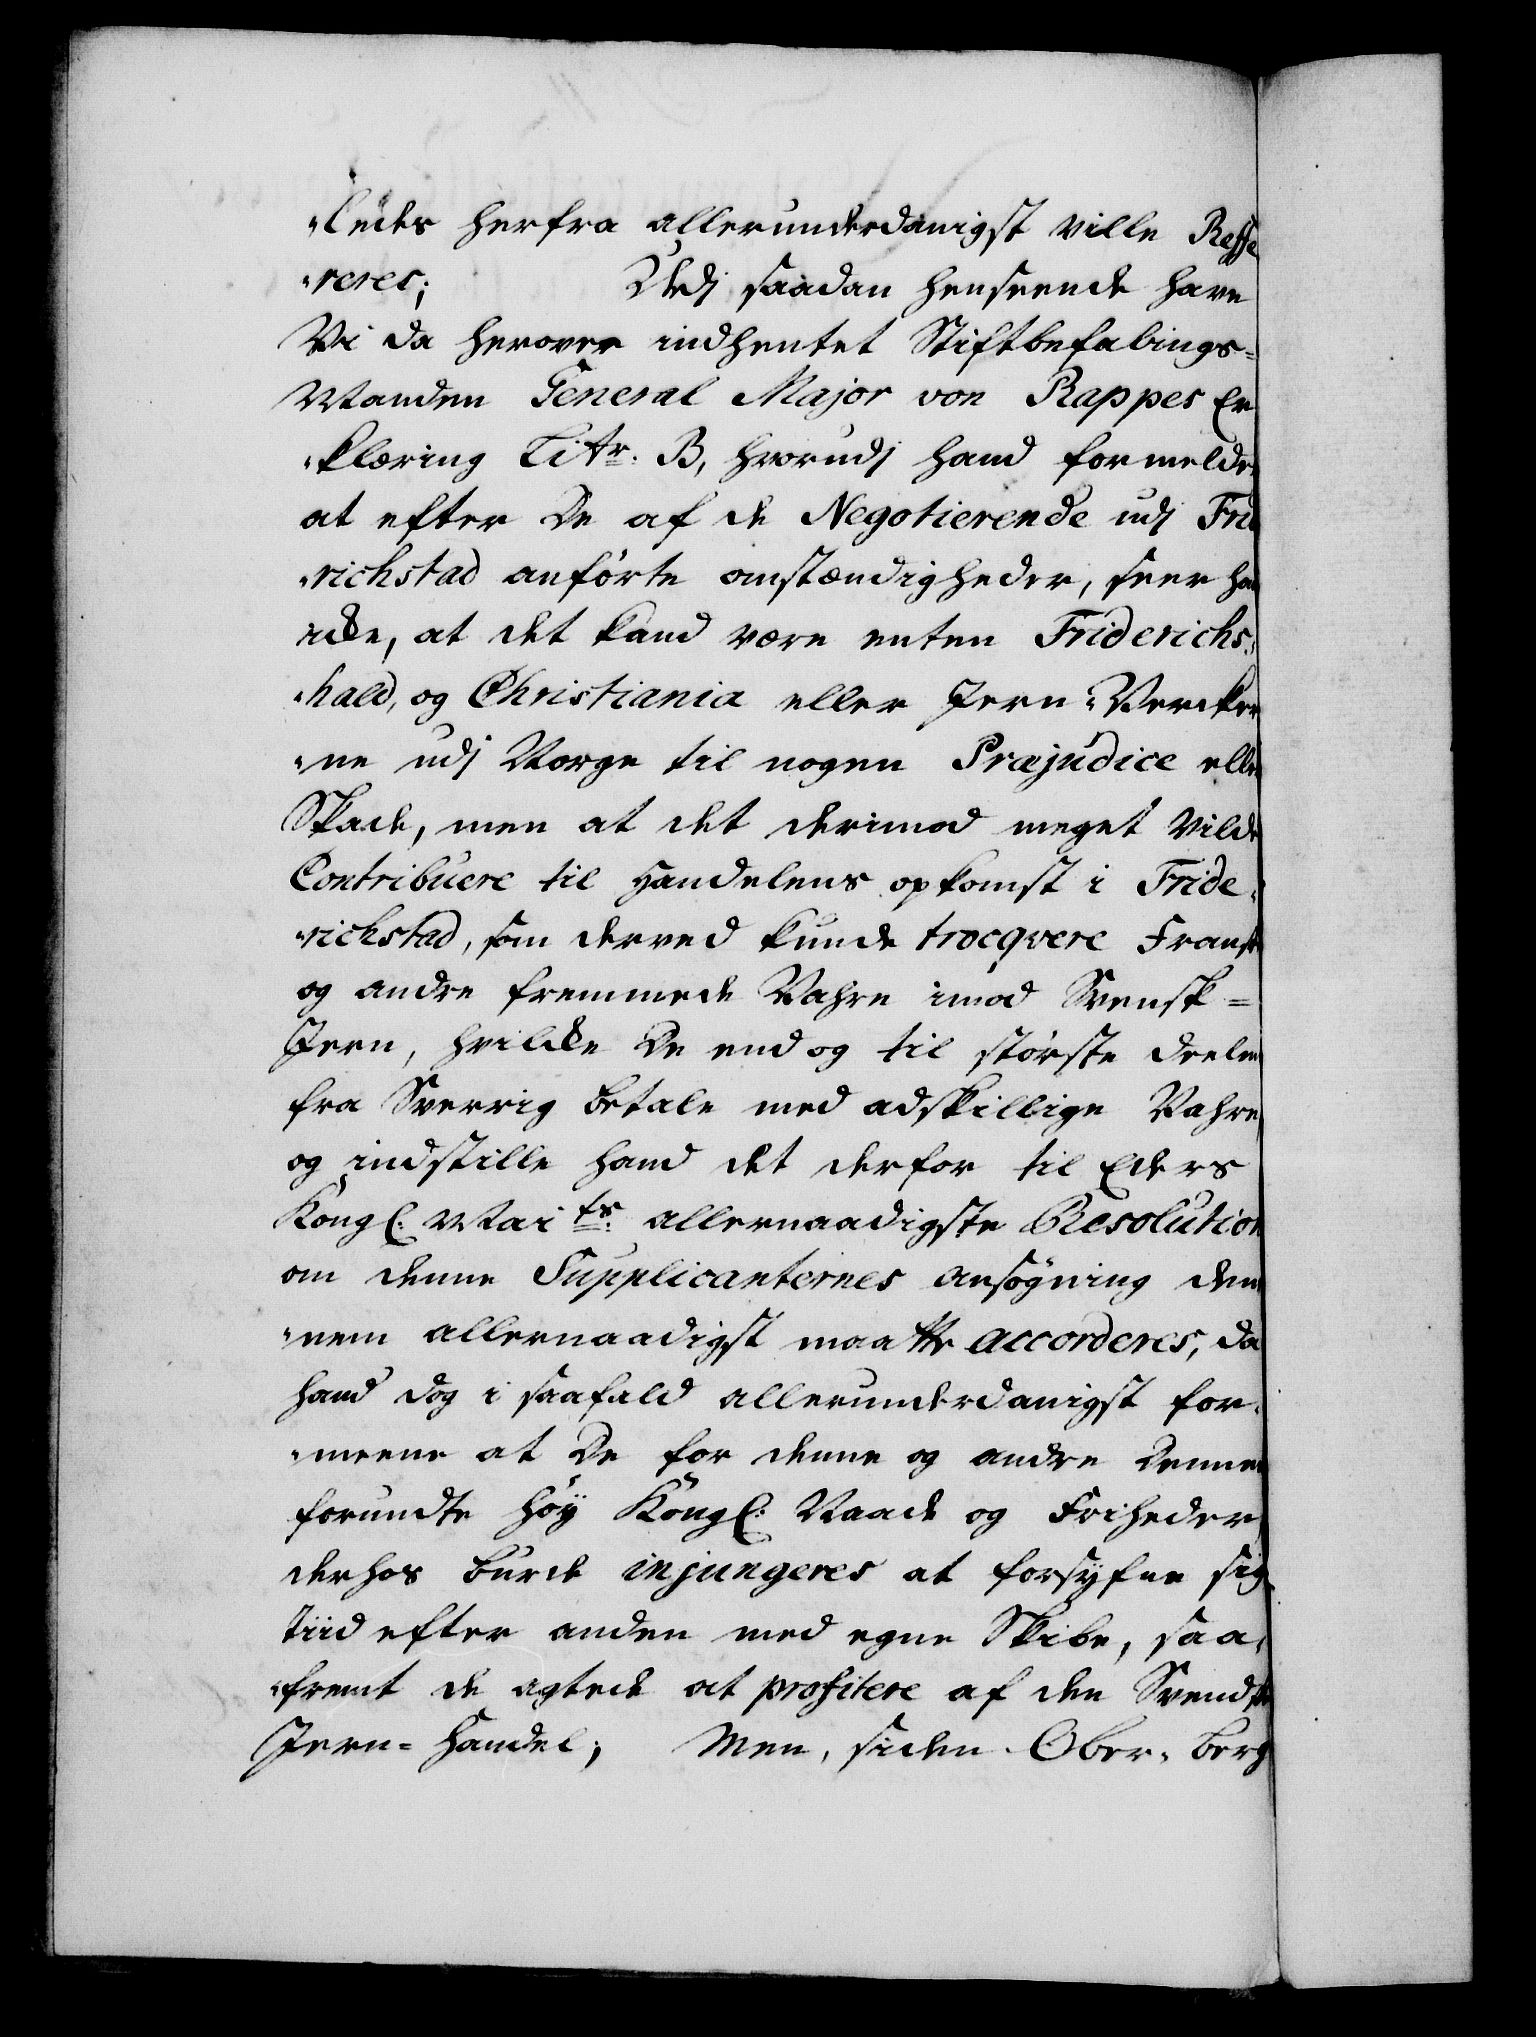 „ledes herfra allerunderdanigst ville Reffe
„reres; Udj saadan henseende have
Vi da herover indhentet Stiftbefalings-
Manden General Major von Rappes Er
„klæring Litr. B, hvorudj hand formelder
at efter De af de Negotierende udj Frid
„richstad anførte omstændigheder, seer hand
icke, at det kand være enten Friderichs,
„hald, og Christiania eller Jern-Vercker
„ne udj Norge til nogen Præjudice eller
Skade, men at det derimod meget vilde
Contribuere til Handelens opkomst i Fride,
„richstad, som derved kunde trocqvere Fransk
og andre fremmede Vahre imod Svensk-
Jern, hvilcke De end og til største deelen
fra Sverrig betale med adskillige Vahre,
og indstille hand det derfor til Eders
Kongl: Maits: allernaadigste Resolution
om denne Supplicanternes ansøgning den
„nem allernaadigst maatte accorderes, da
hand dog i saafald allerunderdanigst for,
„meene at De for denne og andre Dennem
forundte høy Kongl: Naade og Friheder
derhos burde injungeres at forsyfne sig
Tiid efter anden med egne Skibe, saa,
„fremt de agtede at profitere af den Svendske
Jern-Handel; Men, siden Ober-Berg